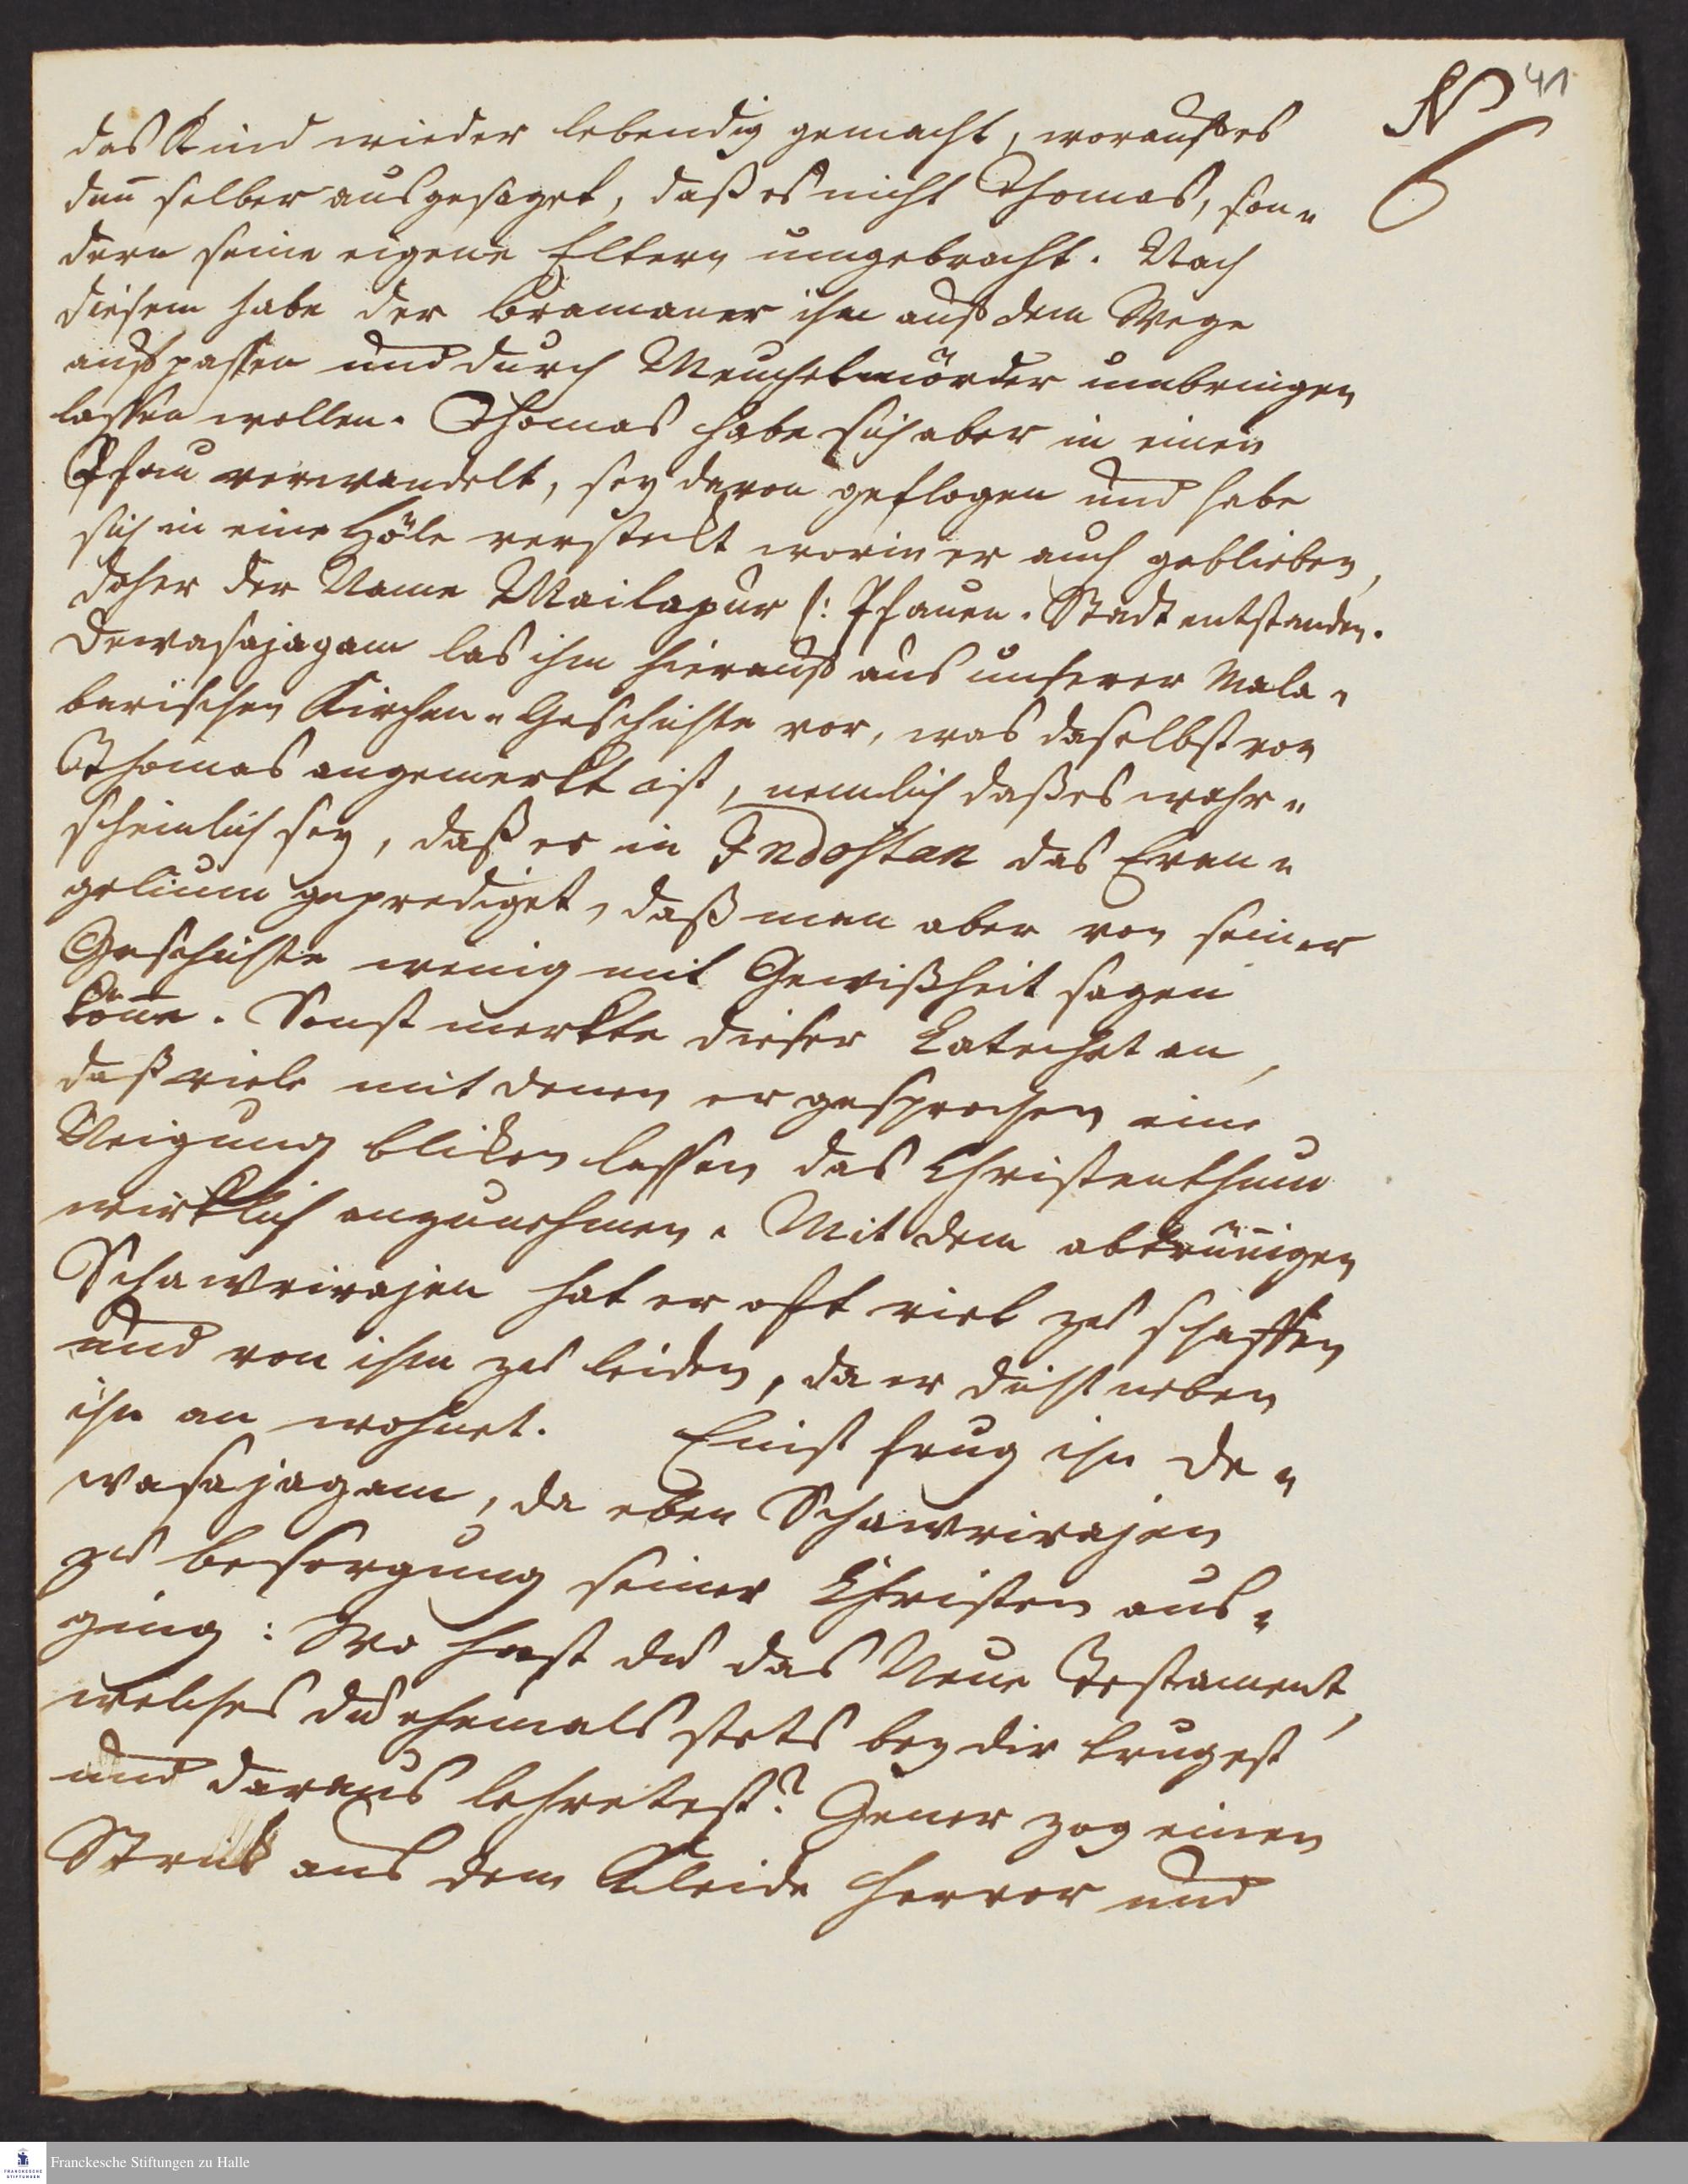 41
N
6
das Kind wieder lebendig gemacht, worauf es
dañ selber ausgesaget, daß es nicht Thomas, son„
dern seine eigene Eltern umgebracht. Nach
diesem habe der Bramaner ihm auf dem Wege
aufpassen und durch Meuchelmörder umbringen
lassen wollen. Thomas habe sich aber in einen
Pfau verwandelt, sey davon geflogen und habe
sich in eine Höle versteckt worin er auch geblieben,
daher der Name Mailapur /: Pfauen-Stadt entstanden.
Dewasajagam las ihm hierauf aus unserer Mala„
barischen Kirchen„Geschichte vor, was daselbst von
Thomas angemerkt ist, nemlich daß es wahr„
scheinlich sey, daß er in Indostan das Evan„
gelium geprediget, daß man aber von seiner
Geschichte wenig mit Gewißheit sagen
köñe. Sonst merkte dieser Catechet an,
daß viele mit denen er gesprochen eine
Neigung bliken lassen das Christenthum
wirklich anzunehmen. Mit dem abtrüñigen
Schawrirajen hat er oft viel zu schaffen
und von ihm zu leiden, da er dicht neben
ihn an wohnet. Einst frug ihn De„
wasajagam, da eben Schawrirajen
zu besorgung seiner Christen aus„
ging: Wo hast du das Neue Testament,
welches du ehemals stets bey dir trugest
und daraus lehretest? Jener zog einen
Strick aus dem Kleide hervor und
Franckesche Stiftungen zu Halle
FRANCKESCHE STIFTUNGEN